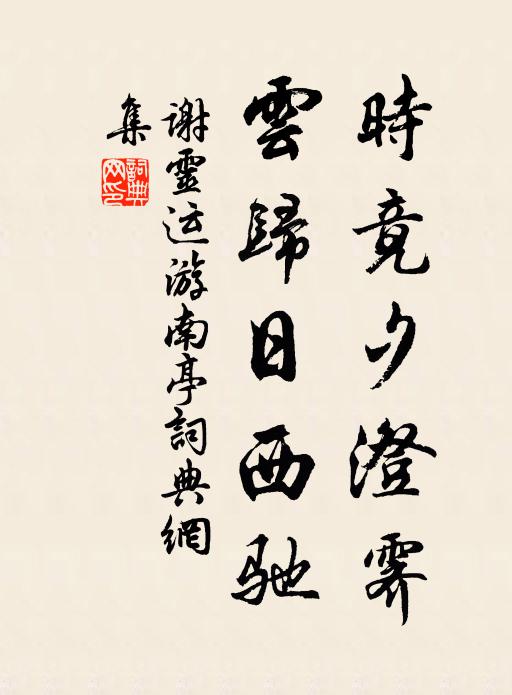 時竟夕澄霽
雲歸日西馳
謝靈运游南亭詞典網
集
詞典網印